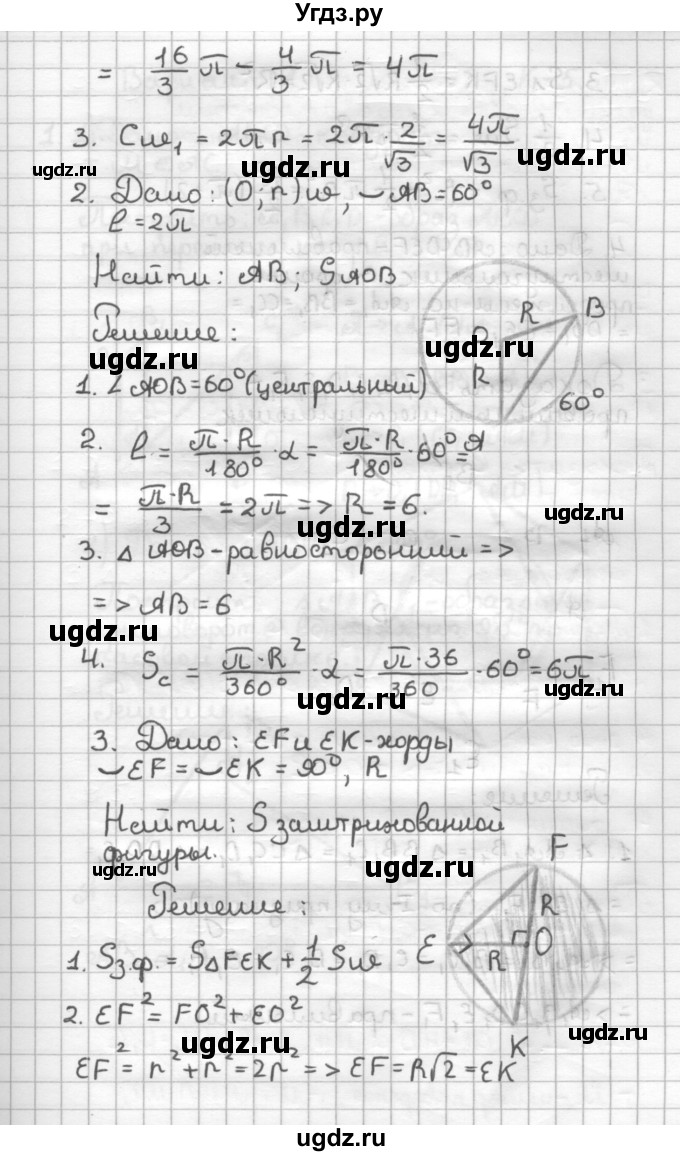 Угдз.ру
= 16/3 π − 4/3 π = 4π
3. Cω₁ = 2πr = 2π · 2/√3 = 4π/√3
ugdz.ru ugdz.ru ugdz.ru
2. Дано: (O; r) ω, ◡AB = 60°
l = 2π
Найти: AB, SAOB
Решение:
ugdz.ru ugdz.ru
R B
O
R
60°
1. ∠AOB = 60° (центральный)
2. l = π·R/180° · α = π·R/180° · 60° =
A
= π·R/3 = 2π => R = 6.
ugdz.ru ugdz.ru
3. △ AOB - равносторонний =>
=> AB = 6
ugdz.ru
4. Sc = π·R²/360° · α = π·36/360 · 60° = 6π
ugdz.ru ugdz.ru
3. Дано: EF и EK - хорды
◡EF = ◡EK = 90°, R
Найти: S заштрихованной
фигуры.
ugdz.ru ugdz.ru
Решение:
F
R
E R O
K
1. Sз.ф. = S△FEK + 1/2 Sω
2. EF² = FO² + EO²
ugdz.ru ugdz.ru
EF² = r² + r² = 2r² => EF = R√2 = EK
ugdz.ru